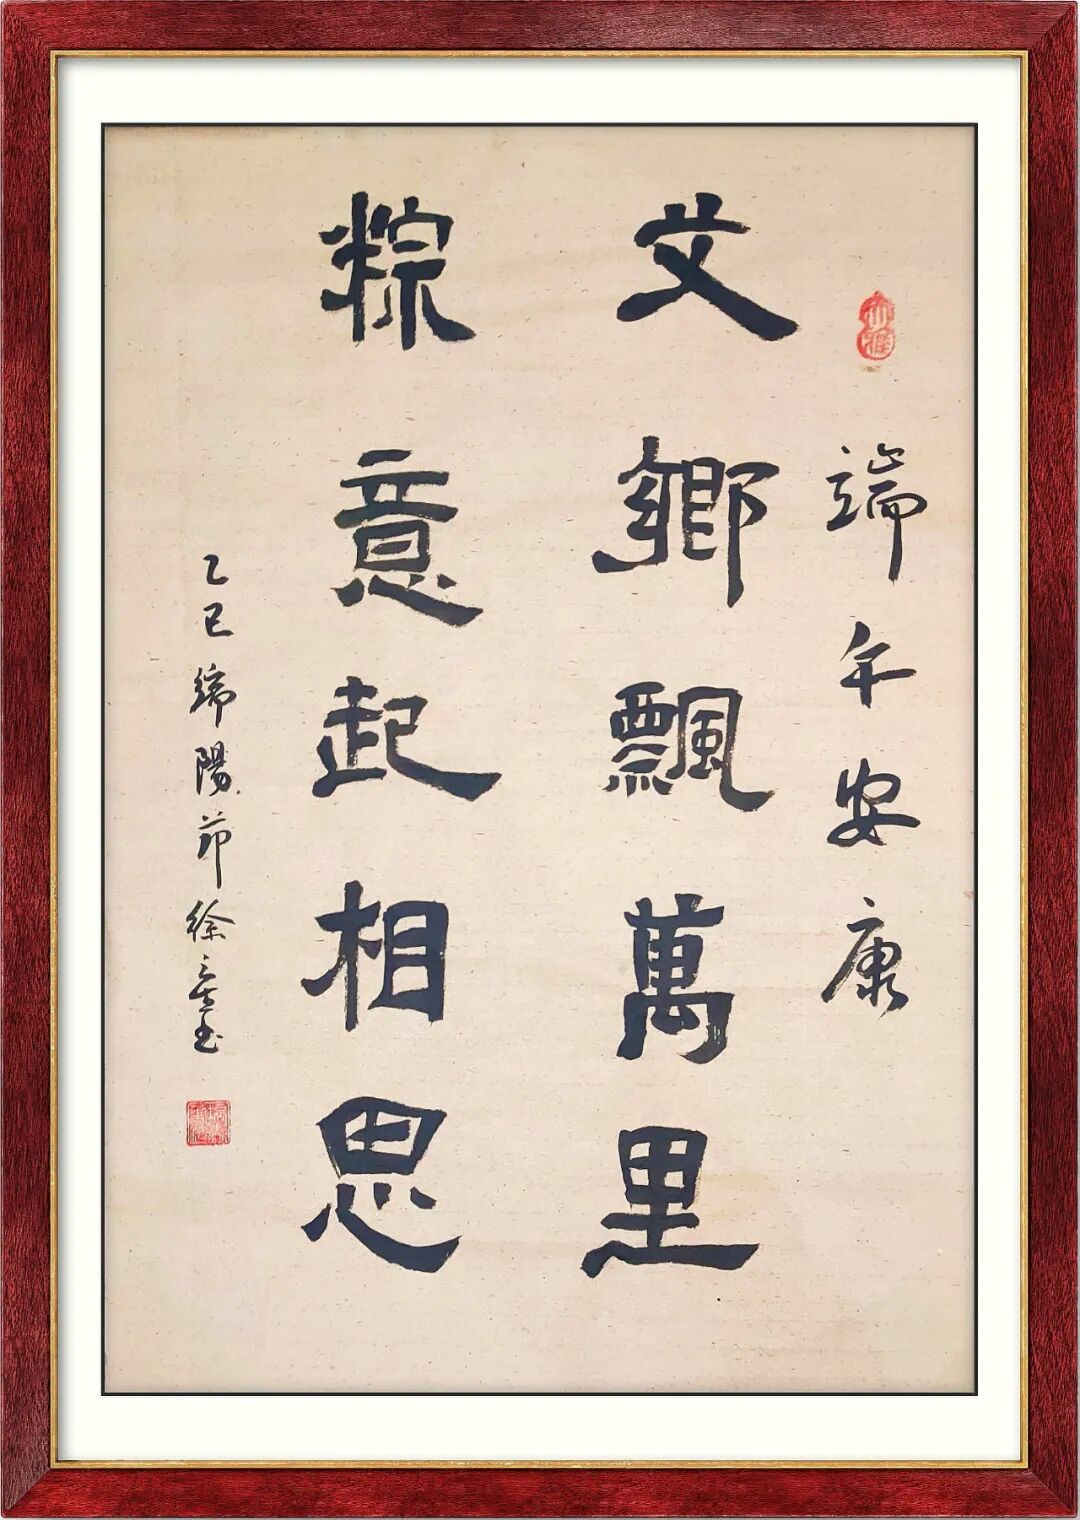 大雅
端午安康
艾鄉飄萬里
粽意起相思
乙巳端陽節徐